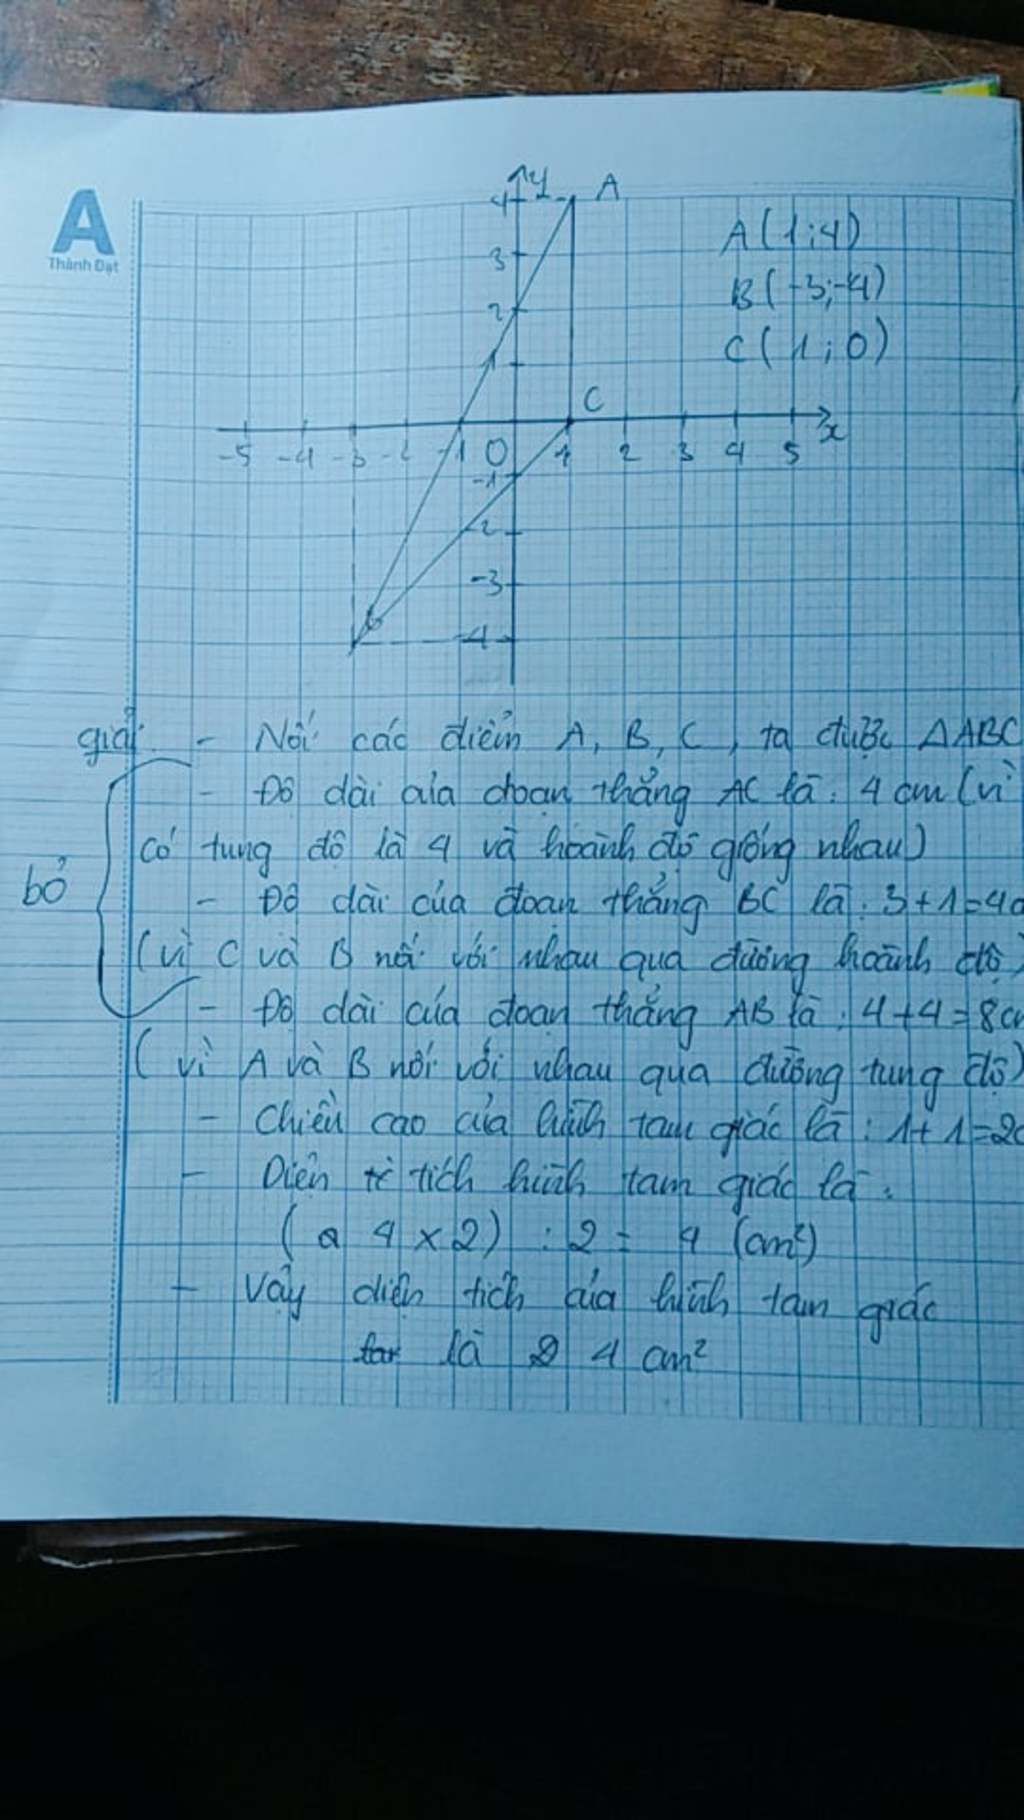 A
Thành Đạt
y A
4
3
2
1
A(1;4)
B(-3;-4)
C(1;0)
C
-5 -4 -3 -2 -1 0 1 2 3 4 5 x
-1
-2
-3
-4
giải - Nối các điểm A, B, C, ta được ΔABC
- Độ dài của đoạn thẳng AC là: 4 cm (vì
có tung độ là 4 và hoành độ giống nhau)
bỏ
- Độ dài của đoạn thẳng BC là: 3+1=4c
(vì C và B nối với nhau qua đường hoành độ)
- Độ dài của đoạn thẳng AB là: 4+4=8cm
(vì A và B nối với nhau qua đường tung độ)
- Chiều cao của hình tam giác là: 1+1=2c
- Diện tích hình tam giác là:
(4 x 2) : 2 = 4 (cm²)
- Vậy diện tích của hình tam giác
là 4 cm²